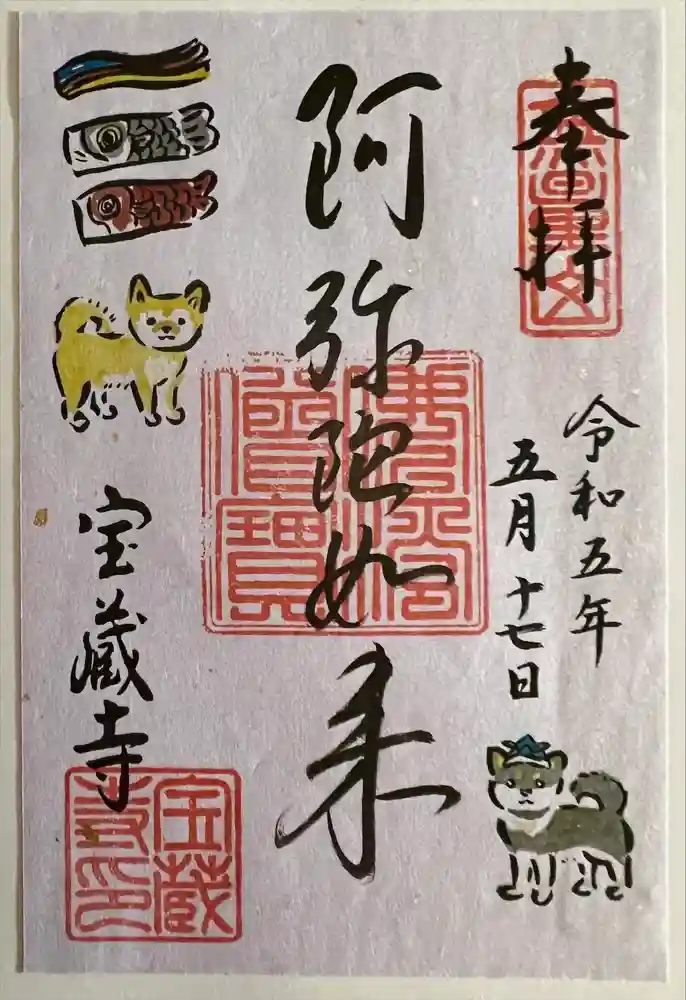 奉拝
令和五年
五月十七日
阿弥陀如来
宝蔵寺
宝蔵
寺印